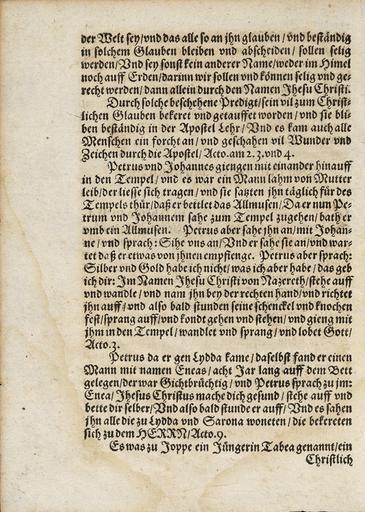 der Welt sey/vnd das alle so an jhn glauben/vnd bestândig
in solchem Glauben bleiben vnd abscheiden/ sollen selig
werden/Vnd sey sonst kein anderer Name/weder im Himel
noch auff Erden/darinn wir sollen vnd können selig vnd ge-
recht werden/dann allein durch den Namen Jhesu Christi.
Durch solche beschehene Predigt/sein vil zum Christ-
lichen Glauben bekeret vnd getauffet worden/vnd sie bli-
ben bestândig in der Apostel Lehr/Vnd es kam auch alle
Menschen ein forcht an/ vnd geschahen vil Wunder vnd
Zeichen durch die Apostel/Acto.am 2.3.vnd 4.
Petrus vnd Johannes giengen mit einander hinauff
in den Tempel/vnd es war ein Mann lahm von Mutter
leib/der liesse sich tragen/vnd sie satzten jhn täglich für des
Tempels thür/daß er bettlet das Allmusen/Da er nun Pe-
trum vnd Johannem sahe zum Tempel zugehen/bath er
vmb ein Allmusen. Petrus aber sahe jhn an/mit Johan-
ne/vnd sprach: Sihe vns an/Vnd er sahe sie an/vnd war-
tet daß er etwas von jhnen empfienge. Petrus aber sprach:
Silber vnd Gold habe ich nicht/was ich aber habe/das geb
ich dir: Im Namen Jhesu Christi von Nazereth/stehe auff
vnd wandle/vnd nam jhn bey der rechten hand/vnd richtet
jhn auff/vnd also bald stunden seine schenckel vnd knochen
fest/sprang auff/vnd kondt gehen vnd stehen/vnd gieng mit
jhm in den Tempel/wandlet vnd sprang/vnd lobet Gott/
Acto.3.
Petrus da er gen Lydda kame/daselbst fand er einen
Mann mit namen Eneas/acht Jar lang auff dem Bett
gelegen/der war Gichtbrüchtig/vnd Petrus sprach zu jm:
Enea/Jhesus Christus mache dich gesund/stehe auff vnd
bette dir selber/Vnd also bald stunde er auff/Vnd es sahen
jhn alle die zu Lydda vnd Sarona woneten/die bekereten
sich zu dem HERRN/Acto.9.
Es was zu Joppe ein Jüngerin Tabea genannt/ein
Christlich